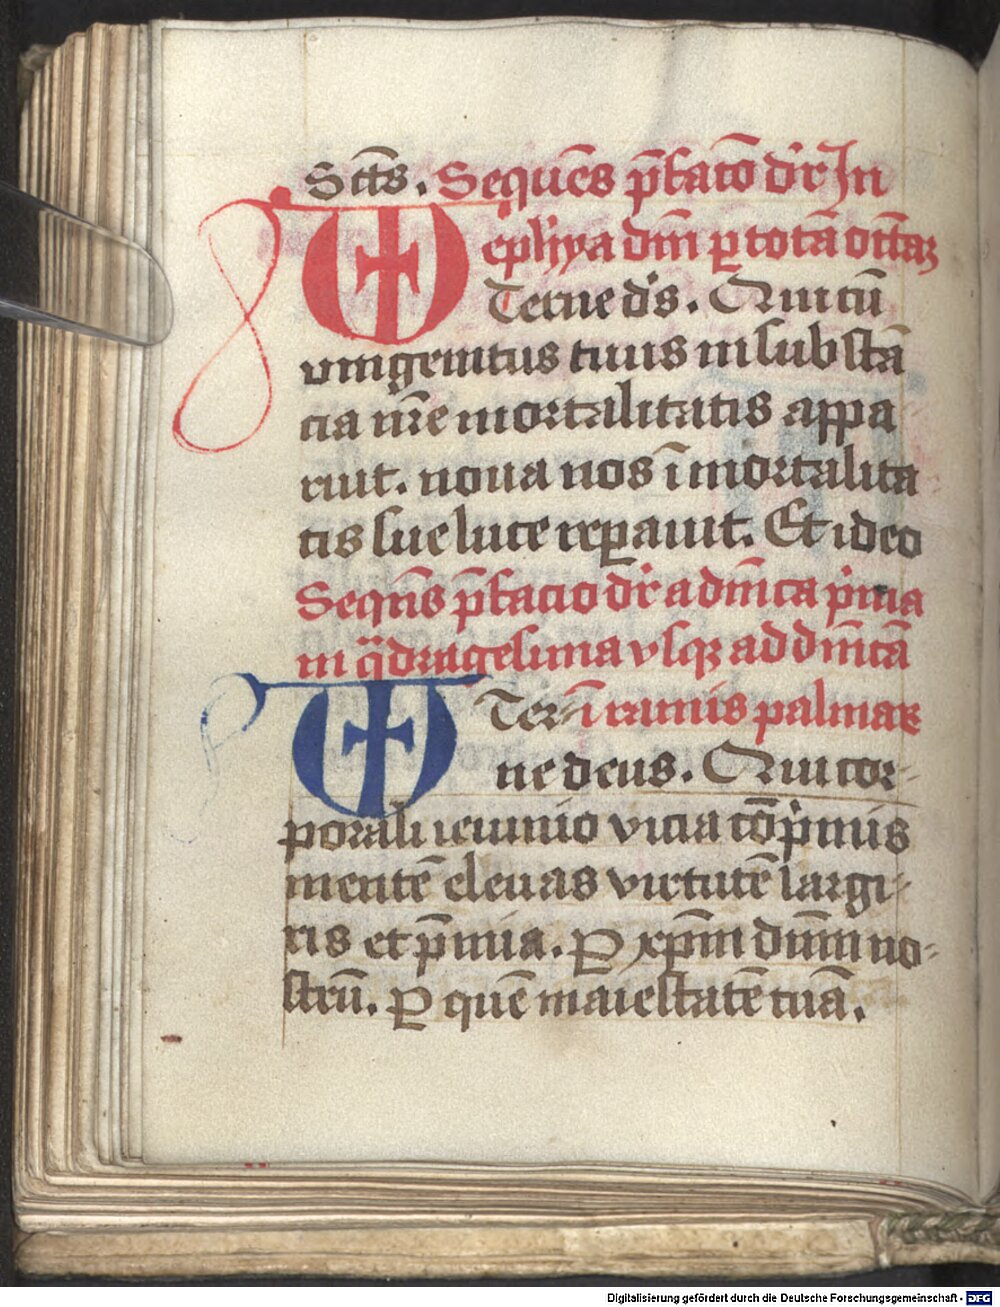 Sctūs. Sequēs p̄facō dr̄ In
ephīya dn̄i ꝑ totā octāꝫ
Terne d̄s. Qui cū
vnigenitus tuus in substā
cia nr̄e mortalitatis appa
ruit. noua nos ī mortalita
tis sue luce reꝑauit. Et ideo
Seqn̄s p̄facio dr̄ a dn̄ica pͥma
in qͣdragesima vsqꝫ ad dn̄icā
Ter- ī ramis palmaꝝ
ne deus. Qui cor-
porali ieiunio vicia cōpͥmis
mentē eleuas virtutē largi-
ris et p̄mia. Ꝑ xp̄m dn̄m no-
strū. Ꝑ quē maiestatē tuā.
Digitalisierung gefördert durch die Deutsche Forschungsgemeinschaft - DFG